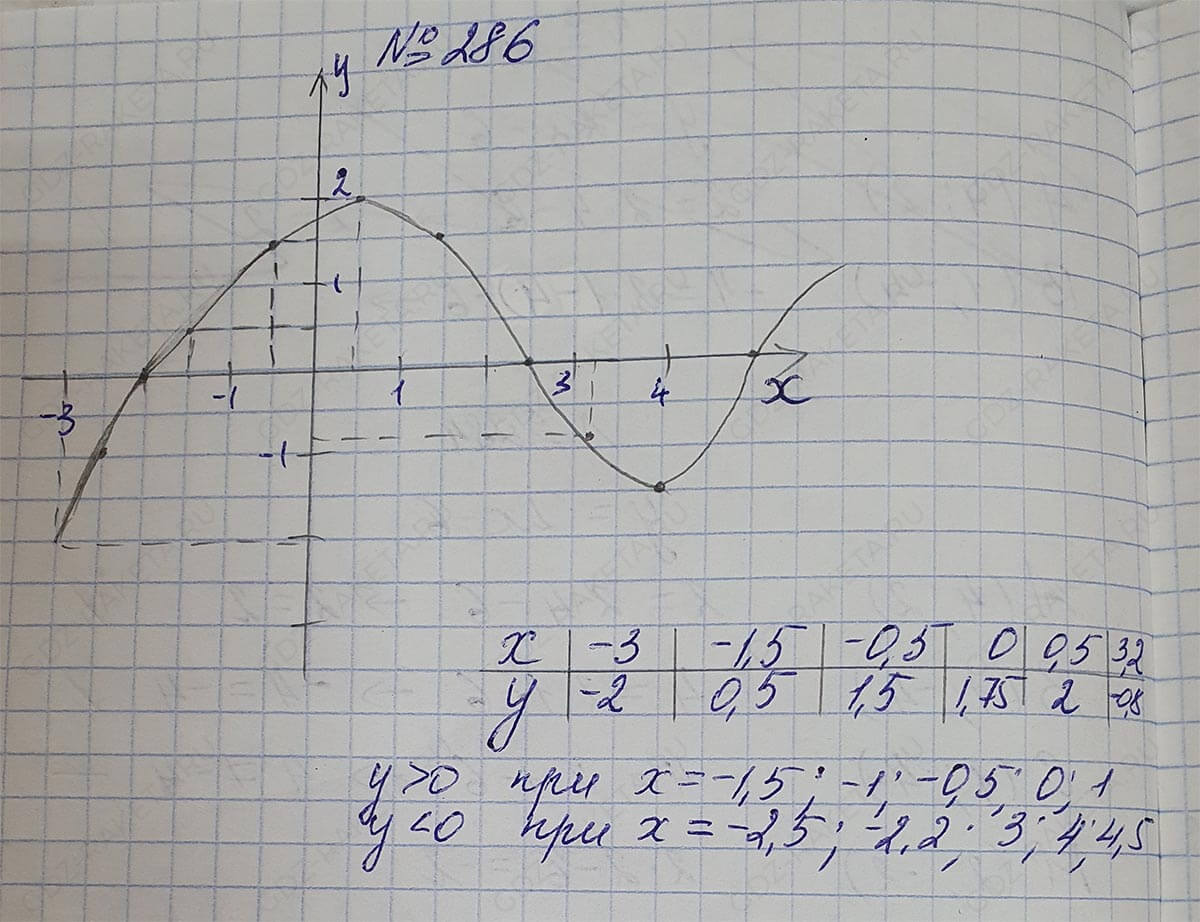 № 286
y
2
1
-3 -1 1 3 4 x
-1
x | -3 | -1,5 | -0,5 | 0 | 0,5 | 3,2
y | -2 | 0,5 | 1,5 | 1,75 | 2 | -0,8
y>0 при x=-1,5; -1; -0,5; 0; 1
y<0 при x=-2,5; -2,2; 3; 4; 4,5
GDZ-RAKETA.RU